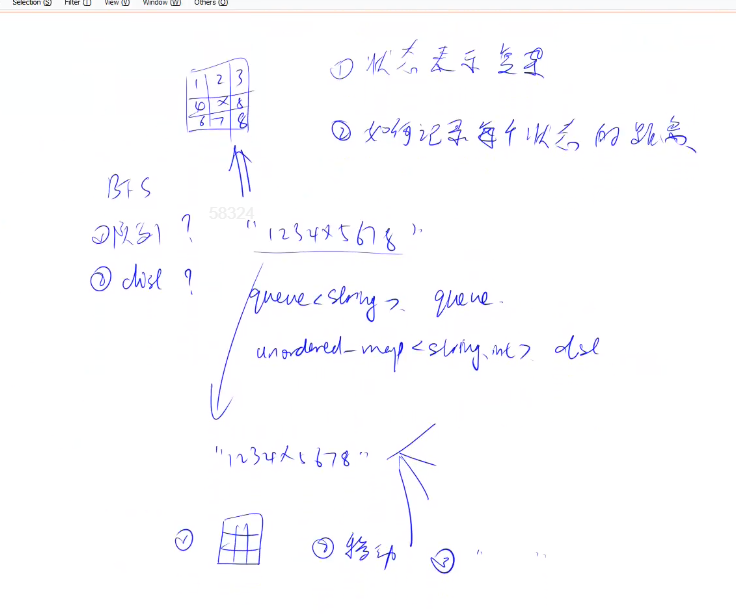 Selection (S) Filter (I) View (V) Window (W) Others (O)
① 状态表示复杂
② 如何记录每个状态的距离
1 2 3
4 x 8
6 7 8
BFS
① 队列 ?
② dist ?
58324
"1234x5678"
queue<string> queue
unordered_map<string, int> dist
"1234x5678"
① ② 移动 ③ " "